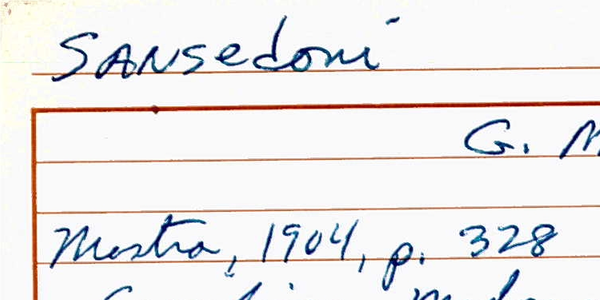 Sansedoni
G. M
Mostra, 1904, p. 328